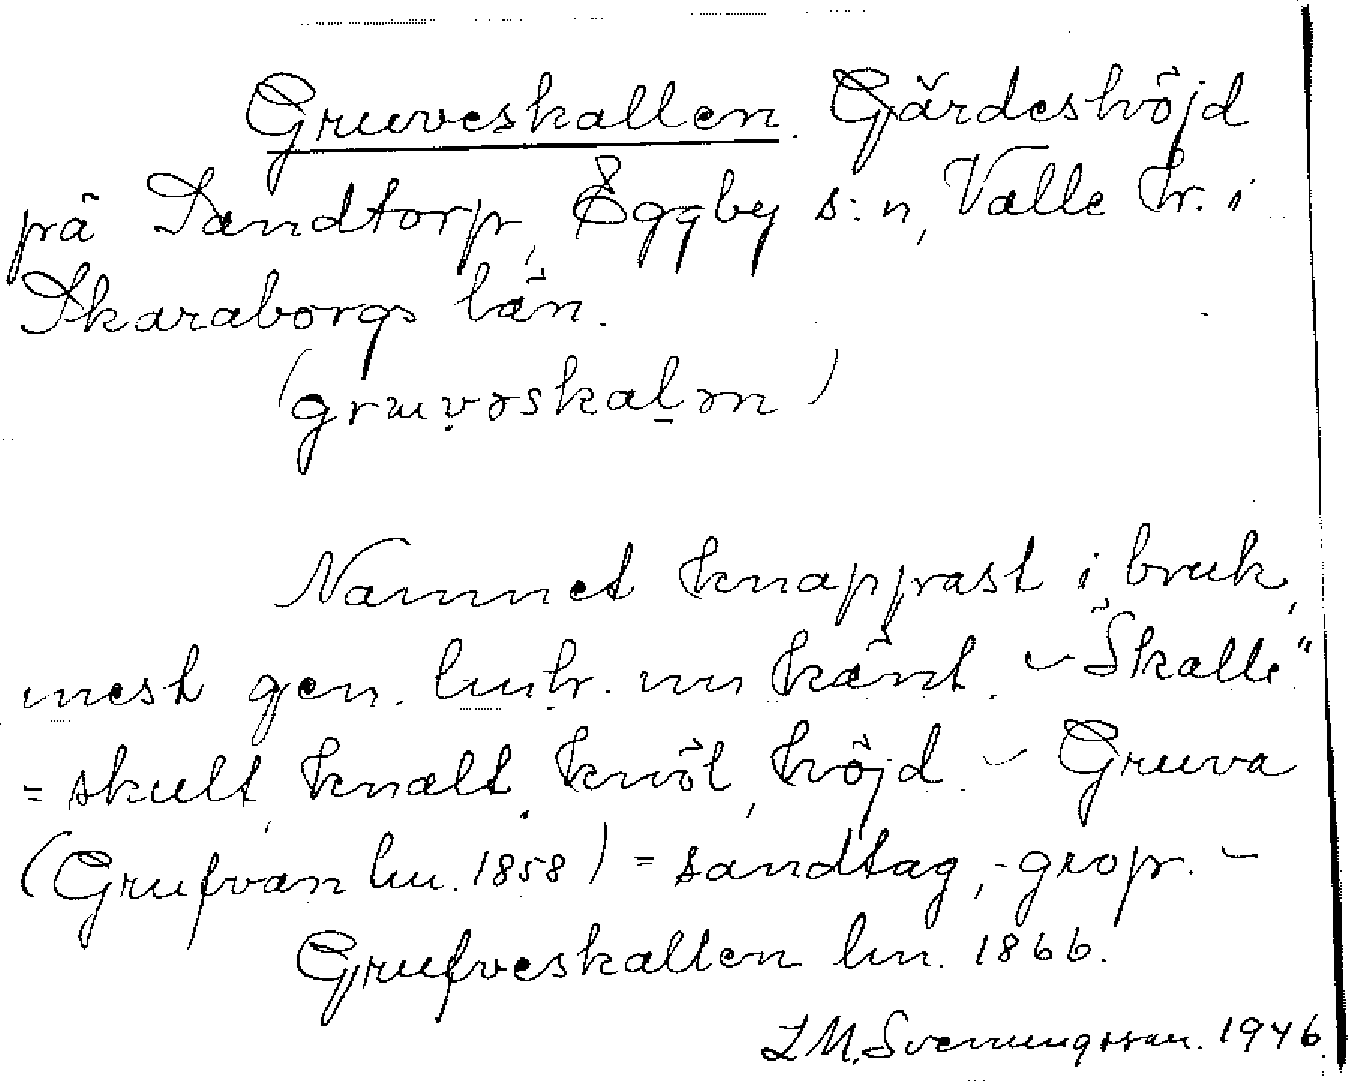 Gruveskallen. Gärdeshöjd
på Sandtorp, Eggby s:n, Valle hr. i
Skaraborgs län.
(gruvəskaḻən)
Namnet knappast i bruk,
mest gen. lmhr. nu känt. - "Skalle"
= skult, knalt, knöl, höjd. - Gruva
(Grufvan lm. 1858) = sandtag, -grop. -
Grufveskallen lm. 1866.
L M. Svenungsson. 1946.